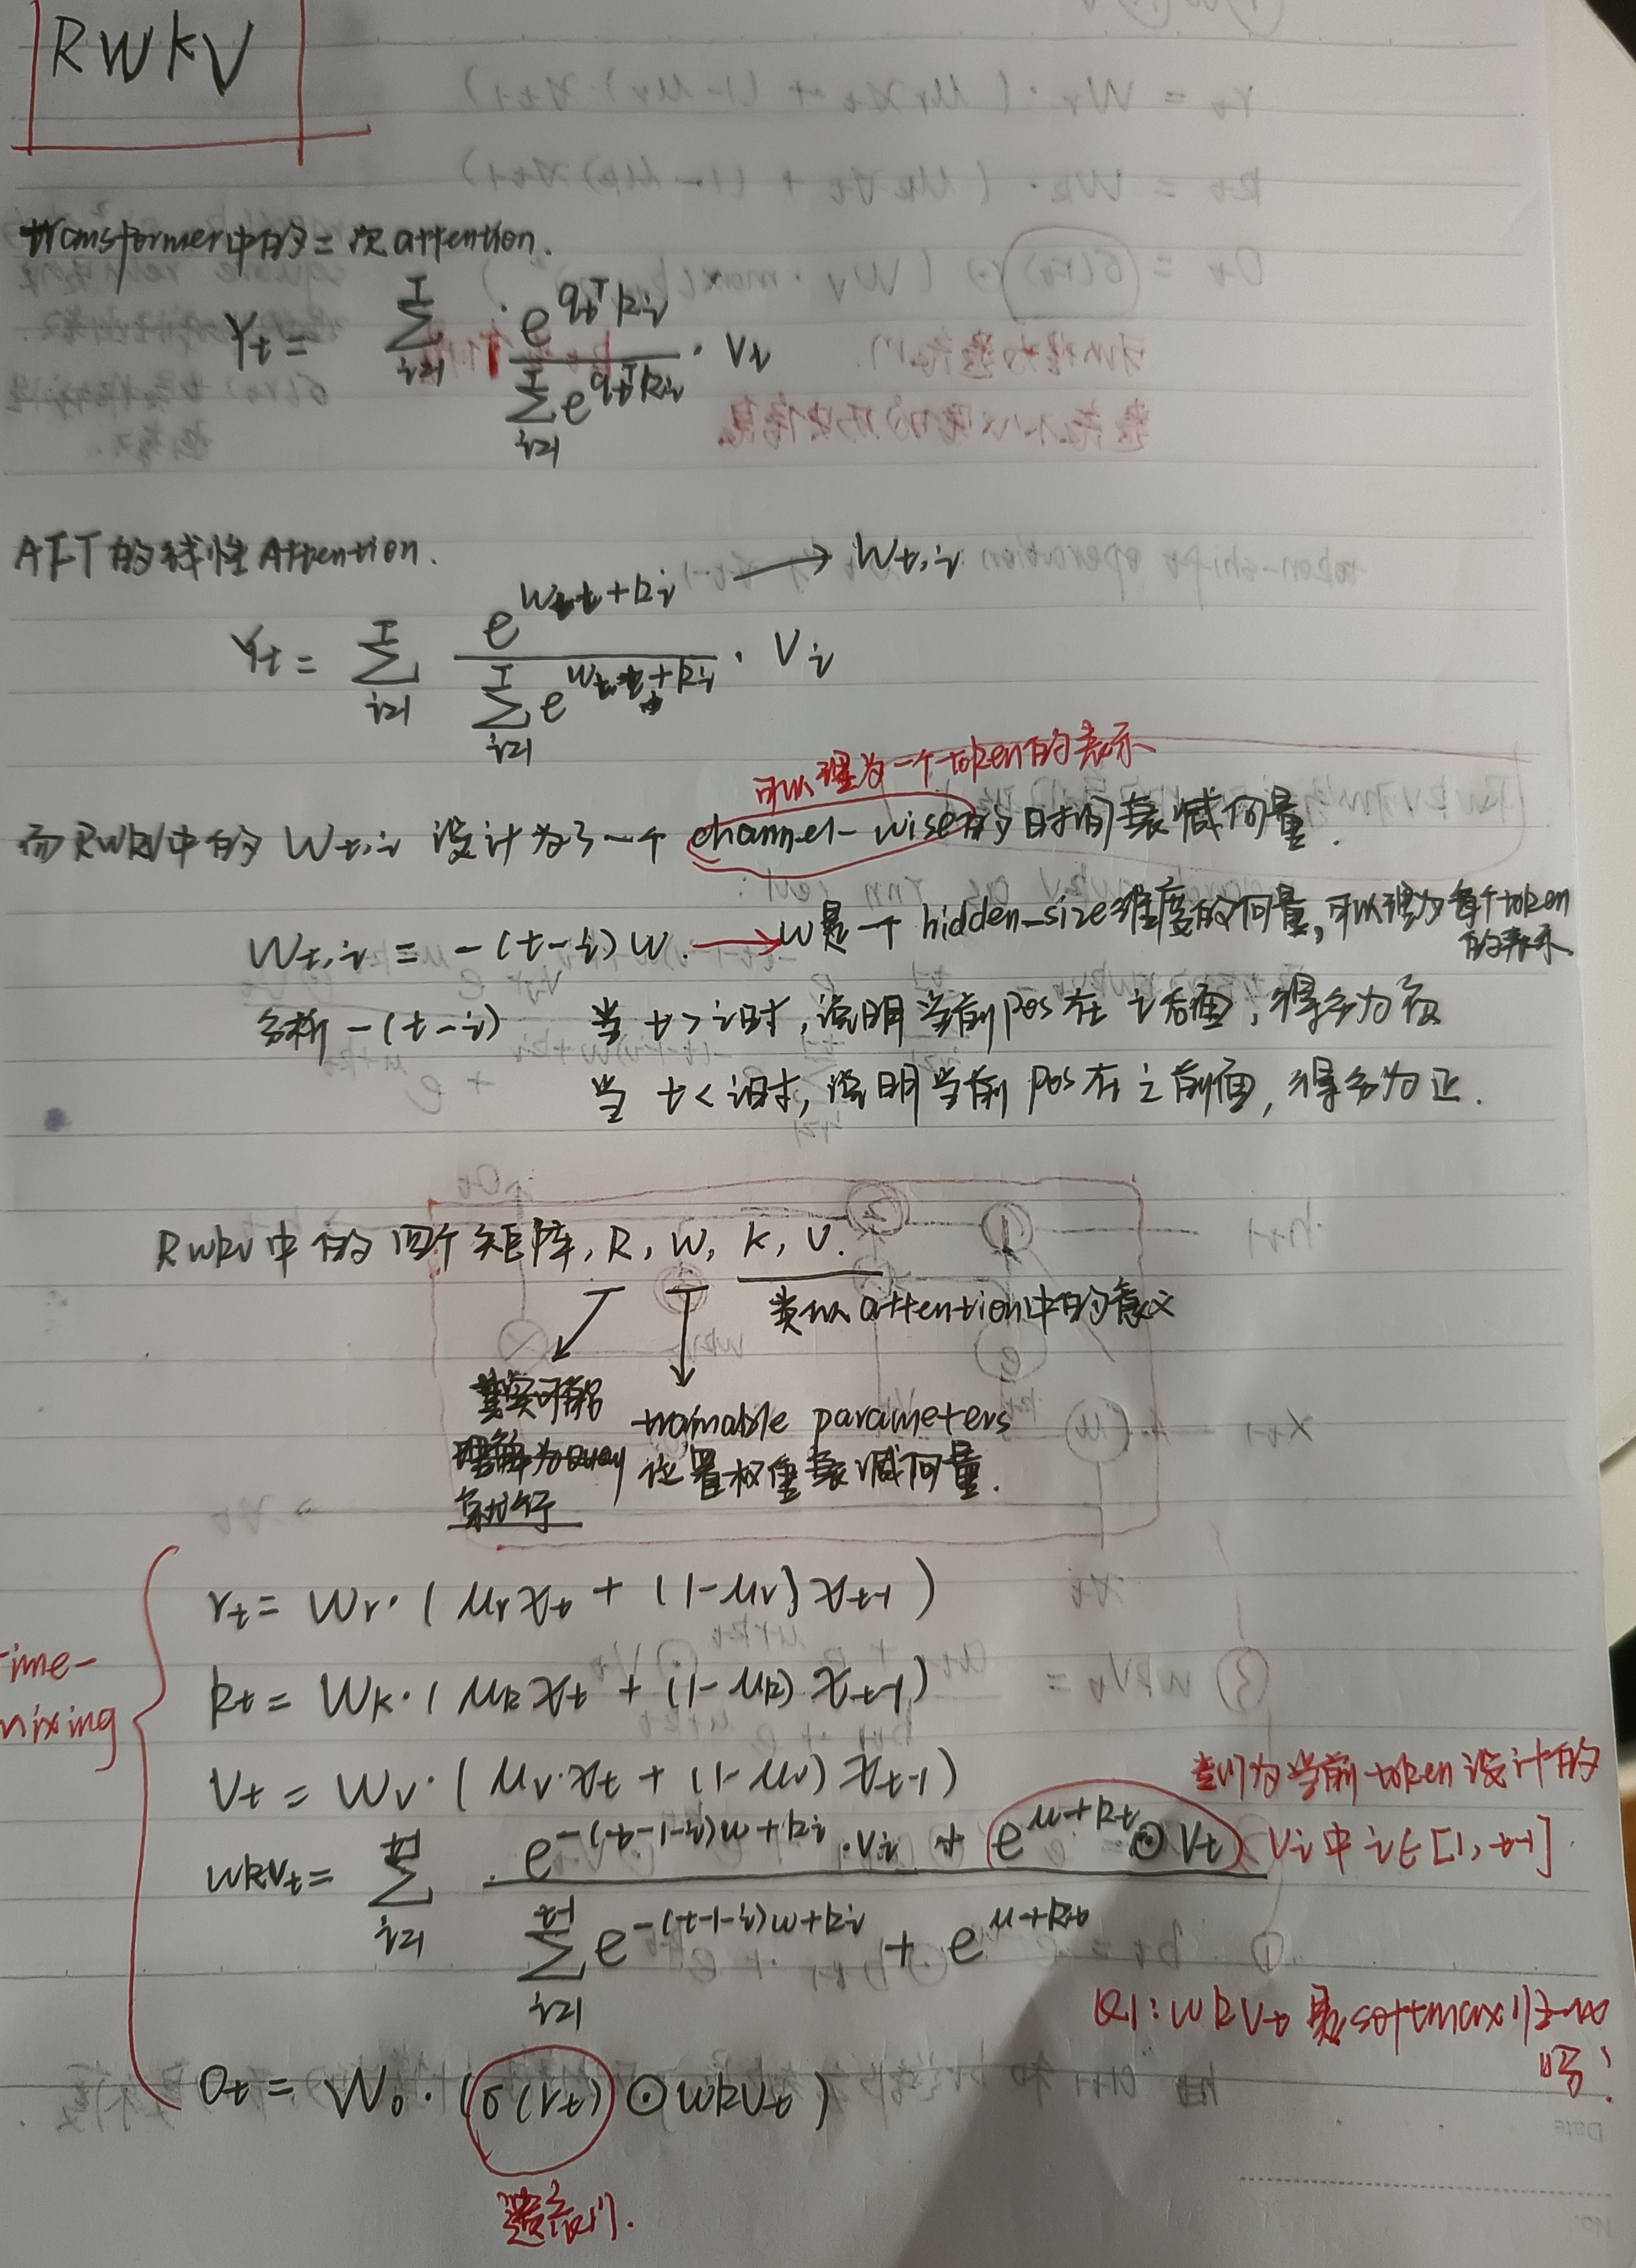 RWKV
transformer中的二次attention.
Y_t = \sum_{i=1}^{T} \frac{e^{q_t^T k_i}}{\sum_{i=1}^{T} e^{q_t^T k_i}} · v_i
AFT的线性Attention.
→ W_{t,i}
Y_t = \sum_{i=1}^{T} \frac{e^{W_{t,i}+k_i}}{\sum_{i=1}^{T} e^{W_{t,i}+k_i}} · V_i
可以理为一个token的表示
而RWKV中的 W_{t,i} 设计为了一个 channel-wise的时间衰减向量.
W_{t,i} = -(t-i)w. → w是一个 hidden_size维度的向量, 可以理为每个token的表示
分析 -(t-i) 当 t > i时, 说明当前pos 在 i 后面, 得分为负
当 t < i时, 说明当前 pos 在 i 前面, 得分为正.
RWKV中的四个矩阵, R, W, K, V.
类似attention中的意义
其实可能
理解为query
就行
trainable parameters
位置权重衰减向量.
time-mixing
r_t = W_r · (μ_r x_t + (1-μ_r) x_{t-1})
k_t = W_k · (μ_k x_t + (1-μ_k) x_{t-1})
V_t = W_v · (μ_v · x_t + (1-μ_v) x_{t-1})
为当前token设计的
wkv_t = \sum_{i=1}^{t-1} \frac{e^{-(t-1-i)w+k_i} · v_i + e^{u+k_t} ⊙ V_t}{\sum_{i=1}^{t-1} e^{-(t-1-i)w+k_i} + e^{u+k_t}}
V_i 中 i∈[1, t-1].
Q1: wkv_t 是softmax归一化吗?
O_t = W_o · (σ(r_t) ⊙ wkv_t)
遗忘门.